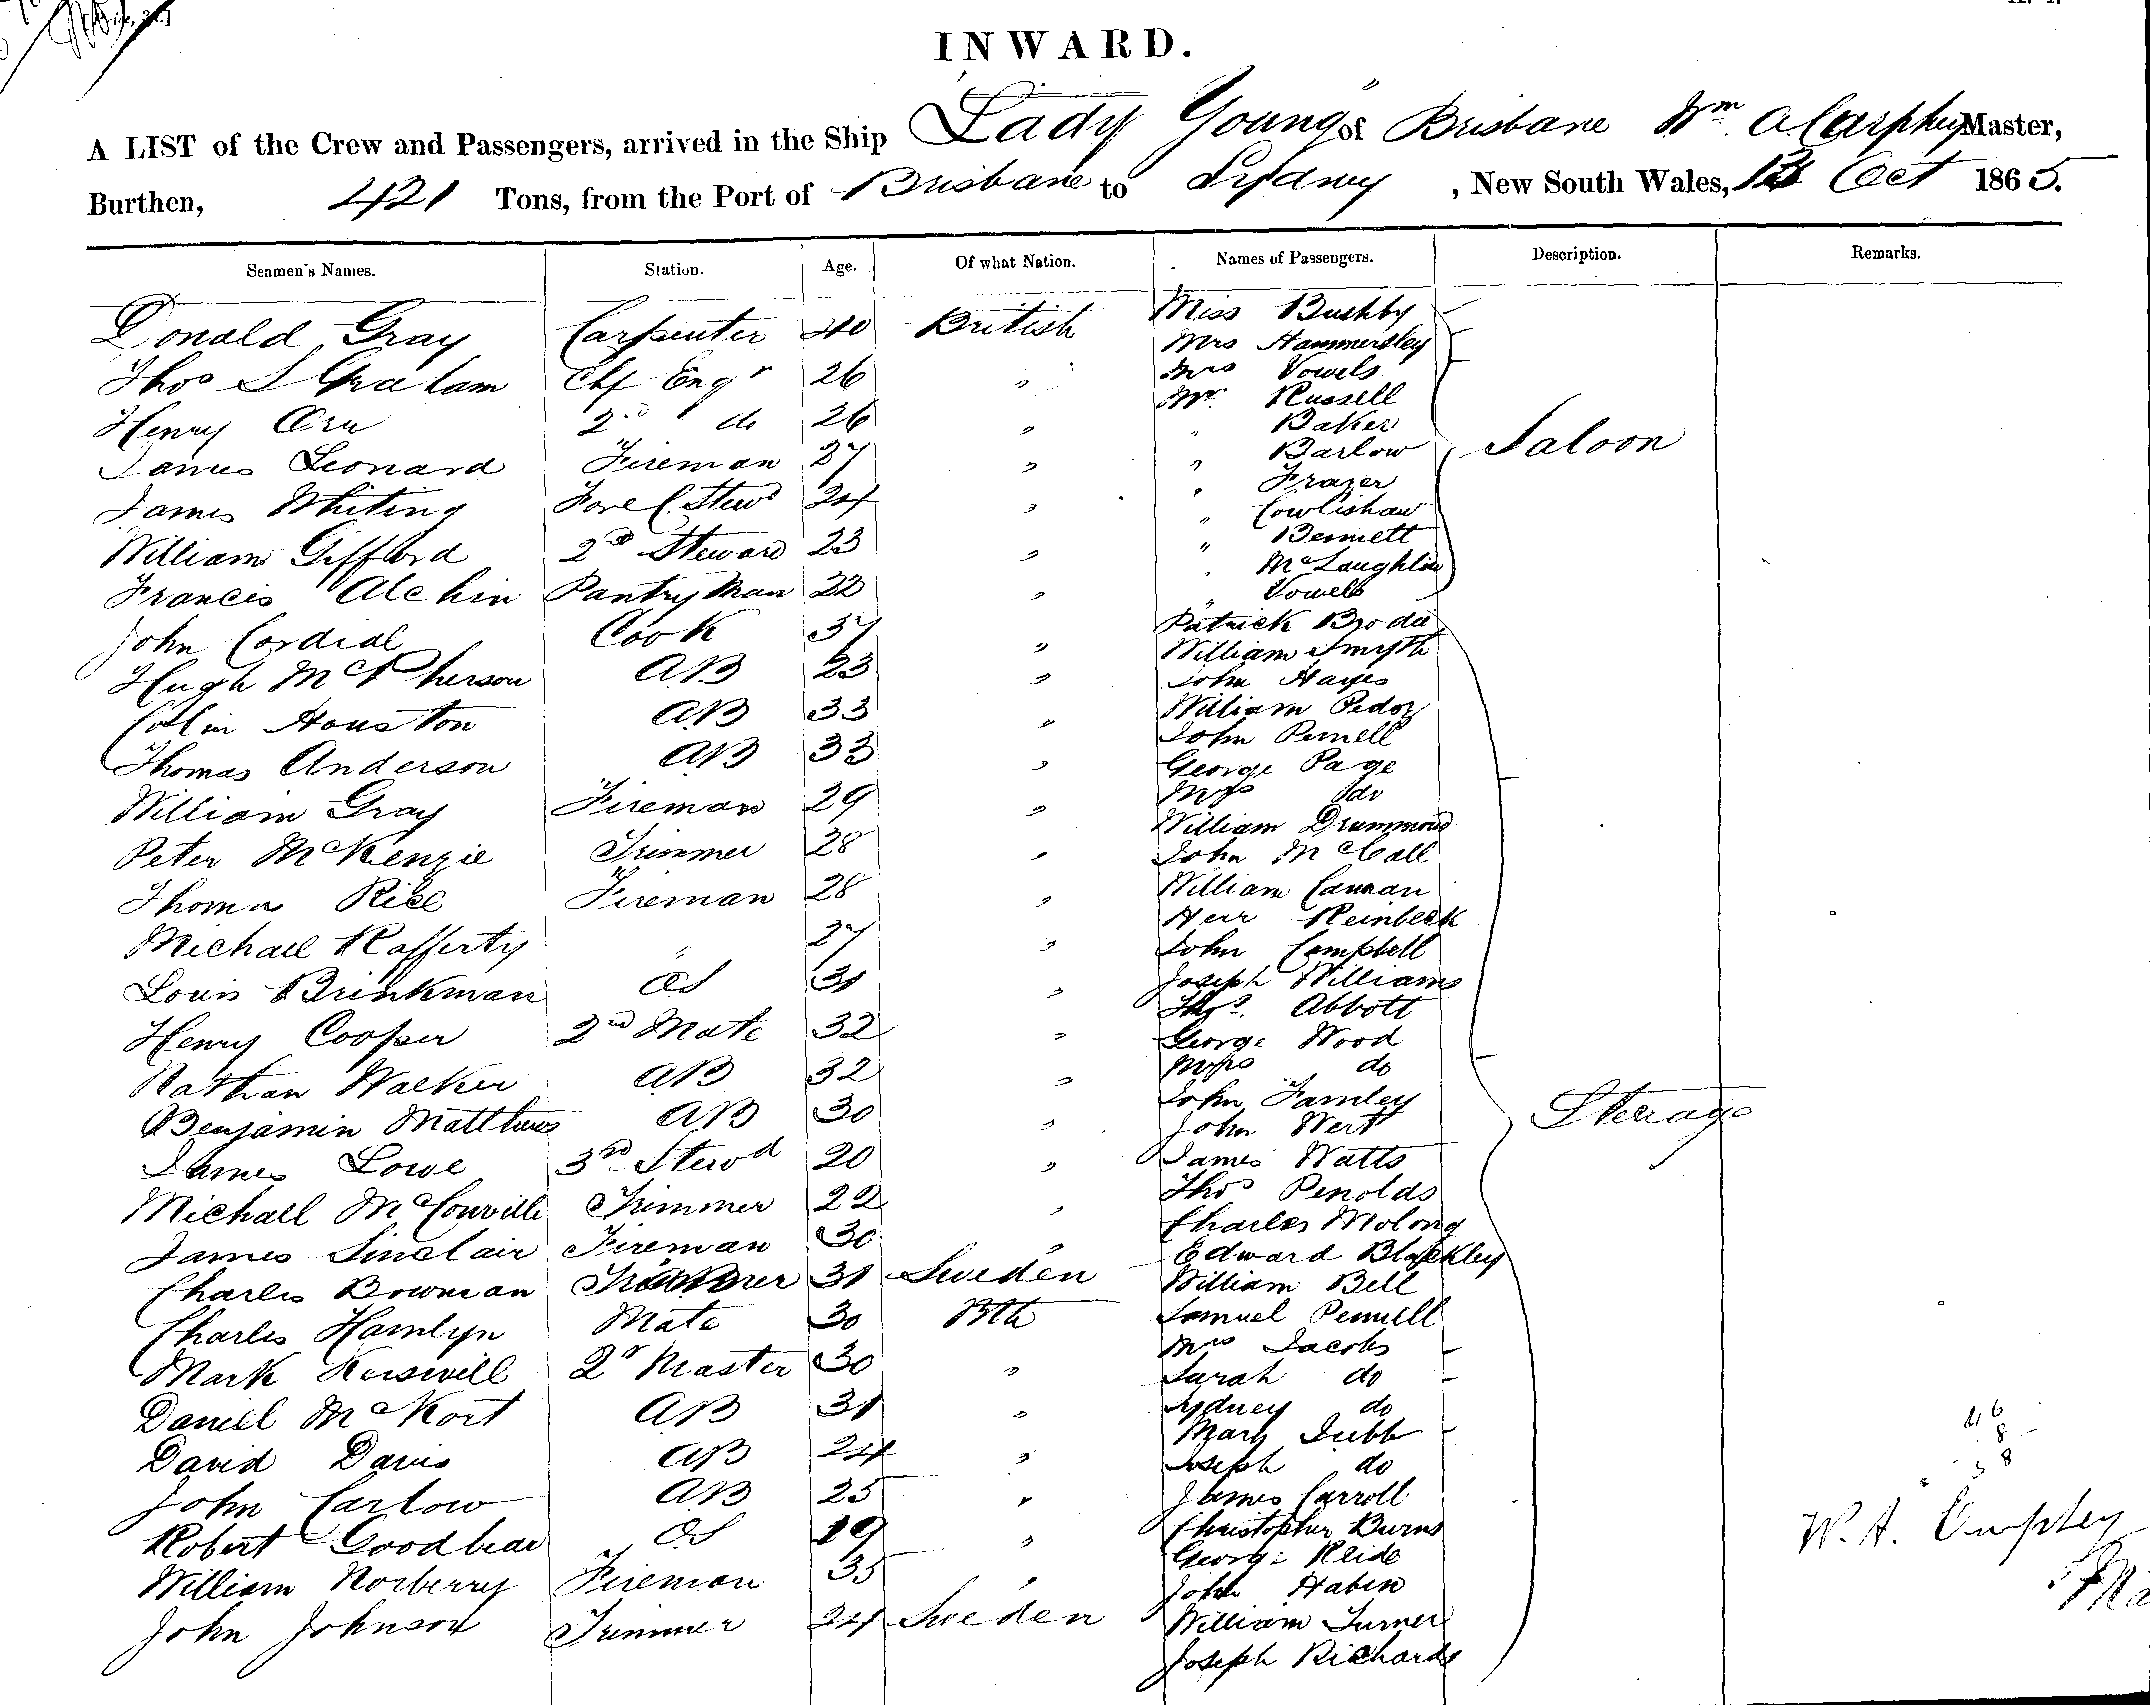 INWARD.
A LIST of the Crew and Passengers, arrived in the Ship Lady Young of Brisbane Wm Master,
Burthen, 421 Tons, from the Port of Brisbane to Sydney, New South Wales, Oct 1865.
Seamen's Names. Station. Age. Of what Nation. Names of Passengers. Description. Remarks.
Donald Gray Carpenter 40 British
Thos S Graham Chf Engr 26 "
Henry 2nd do 26 "
James Leonard Fireman 27 "
James Whiting Fore C. Stewd 24 "
William Gifford 2d Steward 23 "
Francis Alchin Pantry Man 22 "
John Cordial Cook 37 "
Hugh McPherson AB 23 "
Collin Houston AB 33 "
Thomas Anderson AB 33 "
William Gray Fireman 29 "
Peter McKenzie Trimmer 28 "
Thomas Fireman 28 "
Michael Rafferty " 27 "
Louis Brinkman OS 31 "
Henry Cooper 2nd Mate 32 "
Nathan Walker AB 32 "
Benjamin Matthews AB 30 "
James Lowe 3rd Stewd 20 "
Michall McConville Trimmer 22 "
James Sinclair Fireman 30 "
Charles Bowman Trimmer 31 Sweden
Charles Hamlyn Mate 30 Bth
Mark Kerswill 2r Master 30 "
Daniell McKort AB 31 "
David Davis AB 24 "
John Carlow AB 25 "
Robert OS 19 "
William Norberry Fireman 35 "
John Johnson Trimmer 24 Sweden
Miss Bushby
Mrs Hammersley
Mrs Vowels
Mr Russell
" Baker
" Barlow
" Frazer
" Cowlishaw
" Bennett
" McLaughlin
" Vowels
Saloon
Patrick
William Smyth
John Hayes
William
John
George Page
Mrs do
William Drummond
John McCall
William Cannan
Herr Reinbeck
John Campbell
Joseph Williams
Thos. Abbott
George Wood
Mrs do
John Famley
John West
James Watts
Thos Penolds
Charles Molong
Edward Blackley
William Bell
Samuel Pennell
Mrs Jacobs
Sarah do
Sydney do
Mary Jubb
Joseph do
James Carroll
Christopher Burns
George Reide
John Habin
William Turner
Joseph Richards
Sterage
46
8
W. A.